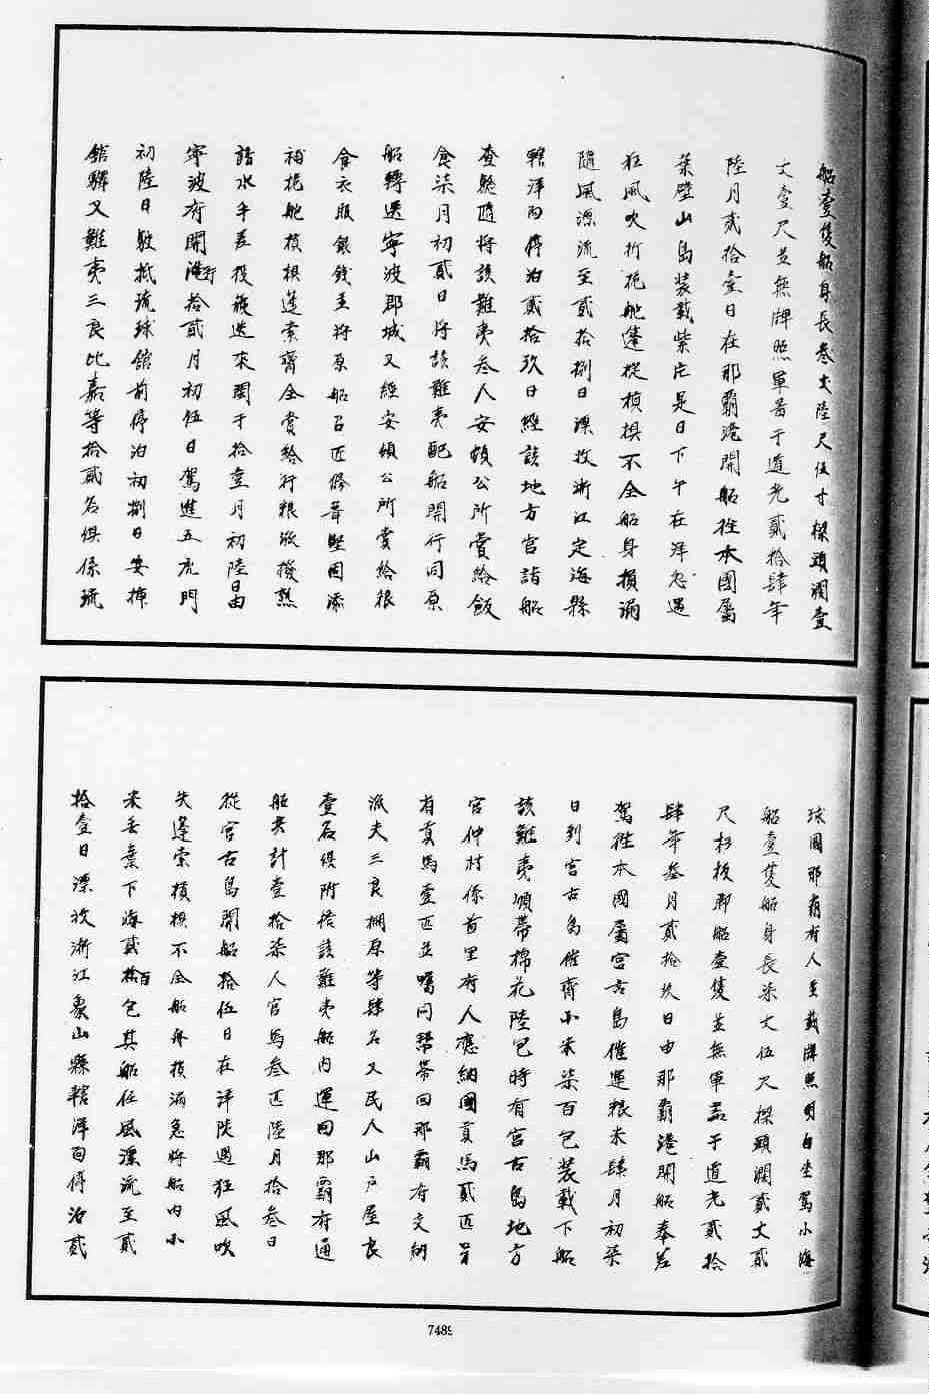 船壹隻船身長叄丈陸尺伍寸樑頭濶壹
丈壹尺並無牌照軍器于道光貳拾肆年
陸月貳拾壹日在那霸港開船往本國屬
葉壁山島装載柴片是日下午在洋忽遇
狂風吹折桅舵篷椗槓椇不全船身損漏
隨風漂流至貳拾捌日漂收浙江定海縣
轄洋面停泊貳拾玖日經該地方官詣船
查驗隨將該難夷叄人安頓公所賞給飯
食柒月初貳日將該難夷配船開行同原
船轉送寧波郡城又經安頓公所賞給粮
食衣服銀錢至將原船召匠修葺堅固添
補桅舵槓椇蓬索齊全賞給行粮派撥熟
諳水手差役護送來閩于拾壹月初陸日由
寧波府開港行拾貳月初伍日駕進五虎門
初陸日駛抵琉球館前停泊初捌日安插
館驛又難夷三良比嘉等拾貳名俱係琉
球國那霸府人呈執牌照明白坐駕小海
船壹隻船身長柒丈伍尺樑頭濶貳丈貳
尺杉板脚船壹隻並無軍器于道光貳拾
肆年叄月貳拾玖日由那霸港開船奉差
駕往本國屬宮古島催運粮米肆月初柒
日到宮古島催齊小米柒百包装載下船
該難夷順帶棉花陸包時有宮古島地方
官仲村係首里府人應納國貢馬貳匹另
有貢馬壹匹並囑同帮帶回那霸府交納
派夫三良棚原等肆名又民人山戶屋良
壹名俱附搭該難夷船內運回那霸府通
船夷計壹拾柒人官馬叄匹陸月拾叄日
從宮古島開船拾伍日在洋陡遇狂風吹
失篷索槓椇不全船身損漏急將船內小
米丟棄下海貳百包其船任風漂流至貳
拾壹日漂收浙江象山縣轄洋面停泊貳
7489